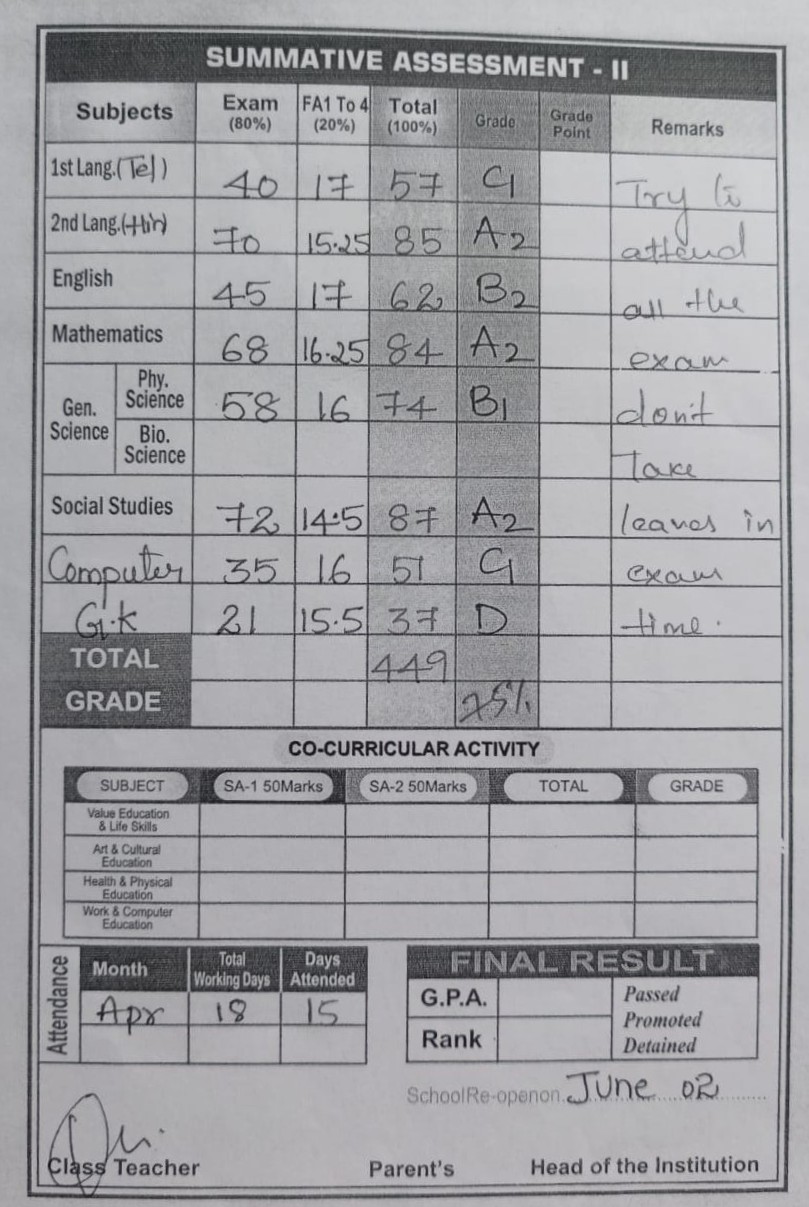 SUMMATIVE ASSESSMENT - II
Subjects Exam (80%) FA1 To 4 (20%) Total (100%) Grade Grade Point Remarks
1st Lang.(Tel) 40 17 57 C1 Try to
2nd Lang.(Hin) 70 15.25 85 A2 attend
English 45 17 62 B2 all the
Mathematics 68 16.25 84 A2 exam
Gen. Science Phy. Science 58 16 74 B1 don't
Bio. Science Take
Social Studies 72 14.5 87 A2 leaves in
Computer 35 16 51 C1 exam
G.K 21 15.5 37 D time.
TOTAL 449
GRADE 75%
CO-CURRICULAR ACTIVITY
SUBJECT SA-1 50Marks SA-2 50Marks TOTAL GRADE
Value Education & Life Skills
Art & Cultural Education
Health & Physical Education
Work & Computer Education
Attendance
Month Total Working Days Days Attended
Apr 18 15
FINAL RESULT
G.P.A. Passed
Promoted
Rank Detained
SchoolRe-openon. June 02
Class Teacher Parent's Head of the Institution